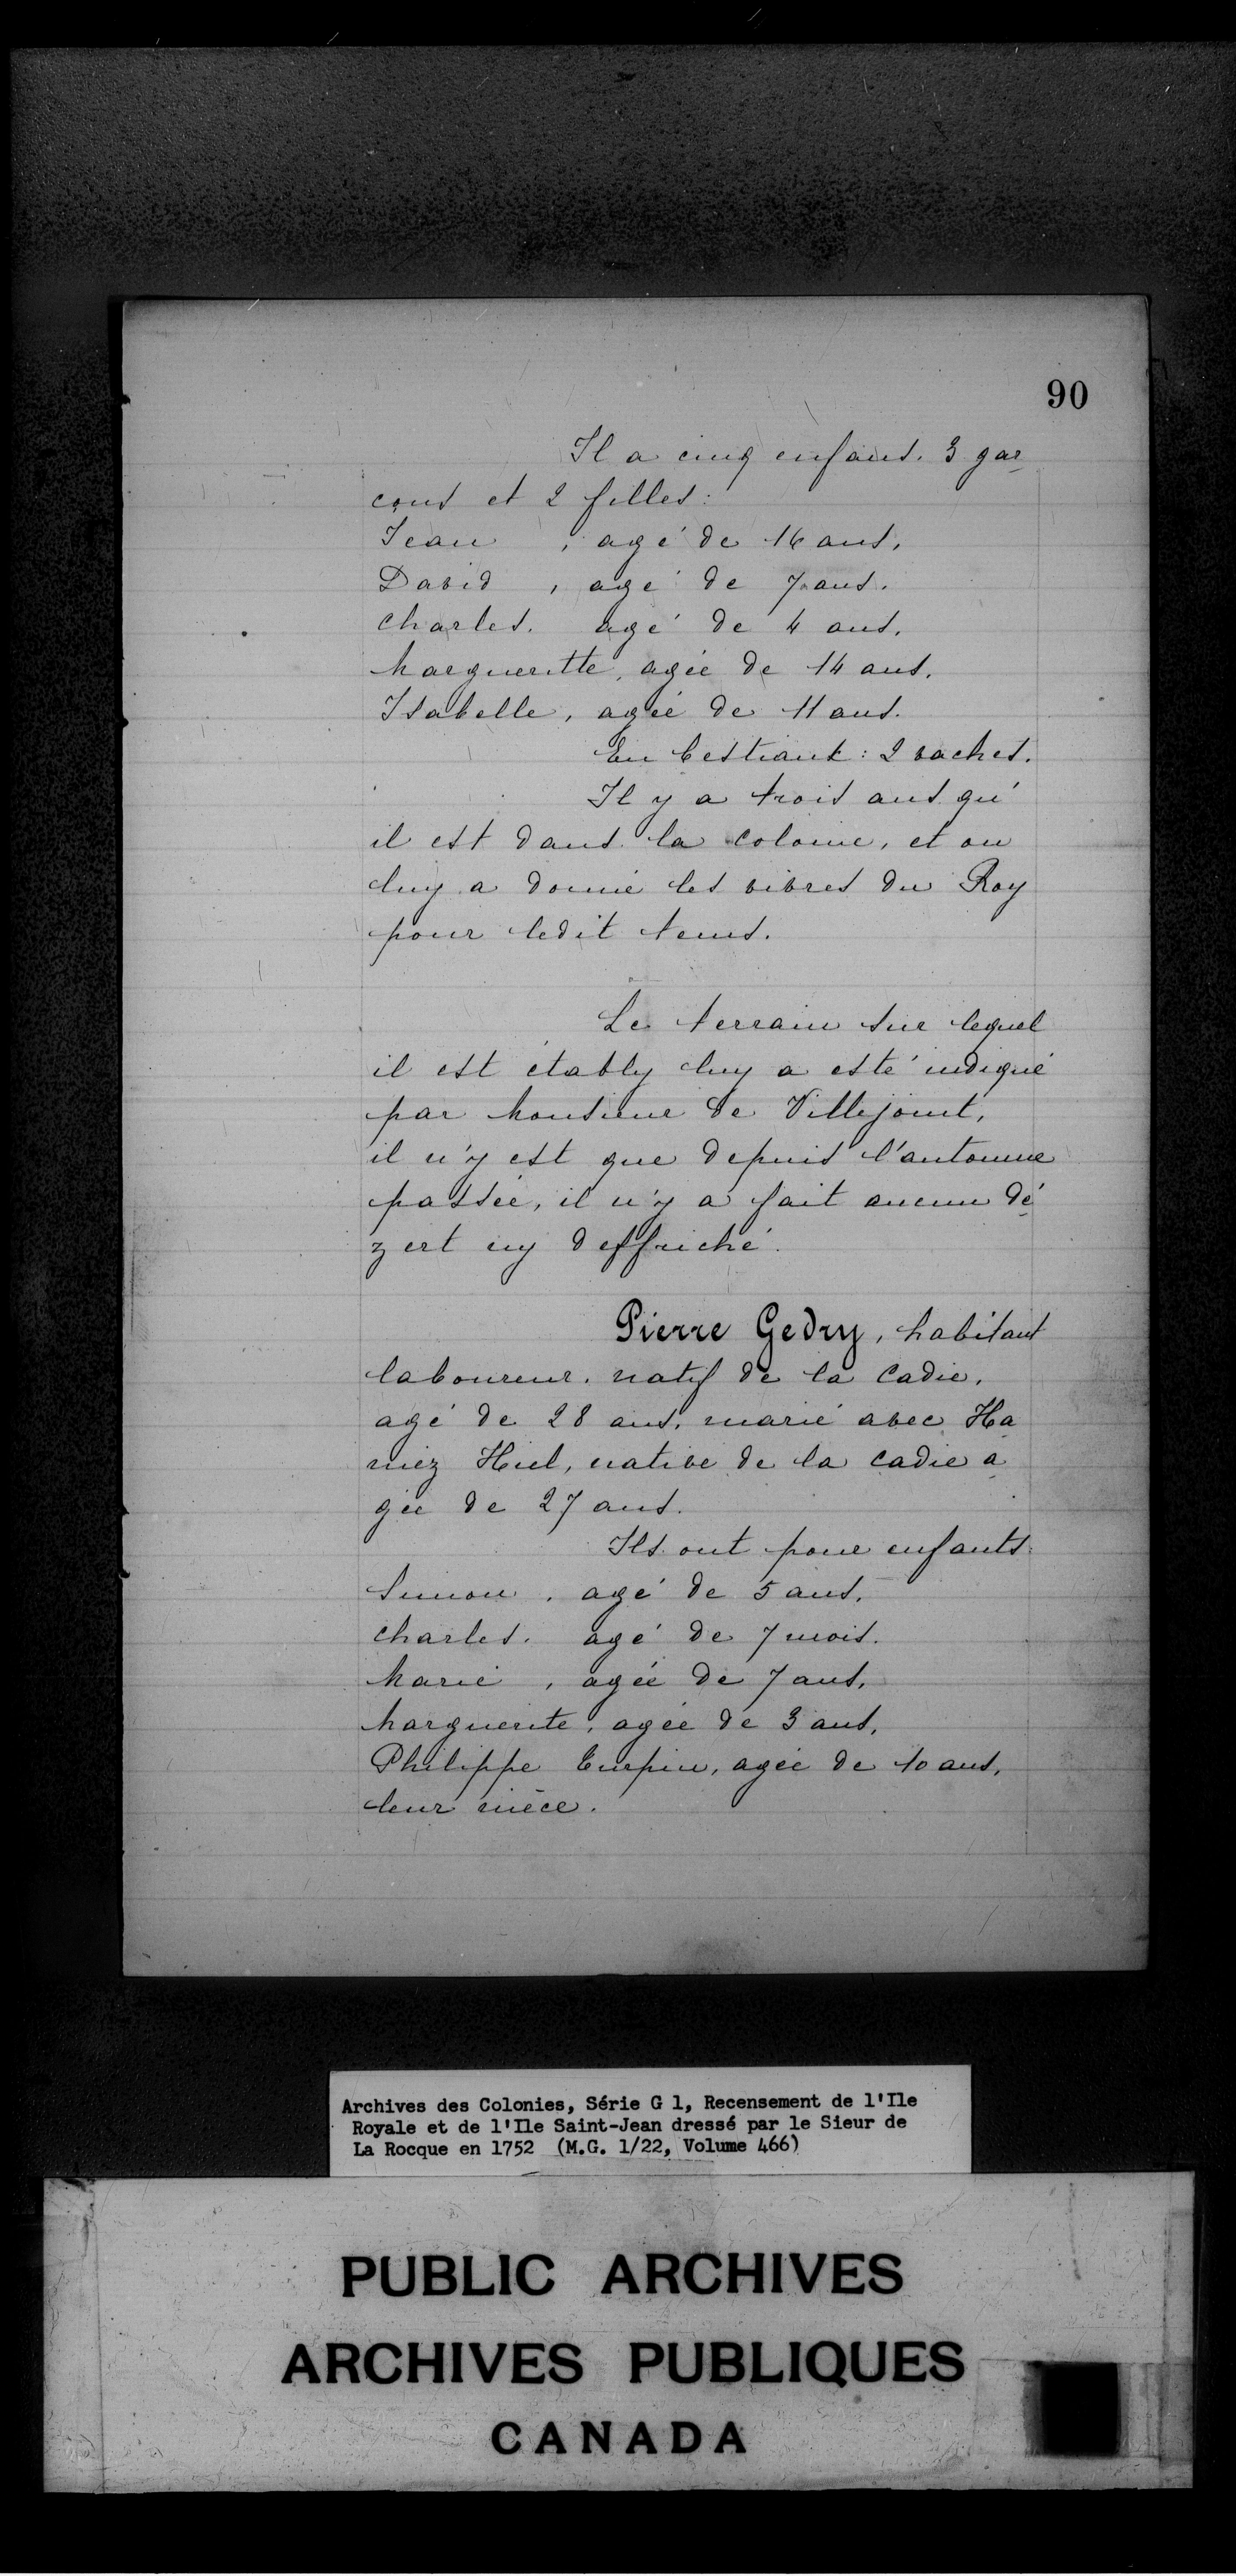 90
Il a cinq enfans. 3 gar
çons et 2 filles:
Jean , agé de 16 ans,
David , agé de 7 ans.
Charles. agé de 4 ans.
Margueritte, agée de 14 ans.
Isabelle, agée de 11 ans.
En bestiaux: 2 vaches.
Il y a trois ans qu'
il est dans la colonie, et on
luy a donné les vivres du Roy
pour ledit tems.
Le terrain sur lequel
il est étably luy a esté indiqué
par Monsieur de Villejouit,
il n'y est que depuis l'automne
passée, il n'y a fait aucun dé
zert ny deffriché.
Pierre Gedry, habitant
laboureur, natif de la Cadie,
agé de 28 ans, marié avec Ha
niez Hiel, native de la Cadie a
gée de 27 ans.
Ils ont pour enfants:
Simon , agé de 5 ans,
Charles. agé de 7 mois.
Marie , agée de 7 ans,
Marguerite, agée de 3 ans,
Philippe Turpin, agée de 10 ans,
leur nièce.
Archives des Colonies, Série G 1, Recensement de l'Ile
Royale et de l'Ile Saint-Jean dressé par le Sieur de
La Rocque en 1752 (M.G. 1/22, Volume 466)
PUBLIC ARCHIVES
ARCHIVES PUBLIQUES
CANADA